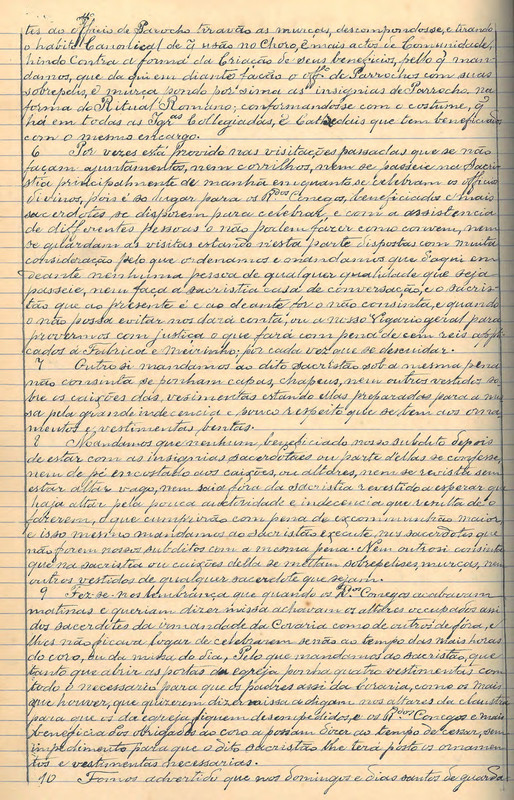 tes ao Officio de Parocho tiravão as murças, descompondosse, e tirando
o habito Canonical de q̃ usão no Choro, e mais actos de Comunidade,
hindo contra a forma da Criação de seus beneficios, pello q̃ man
damos, que daqui em diante fação o off.º de Parrochos com suas
sobrepelis, e murça pondo por sima as insignias de Parrocho na
forma do Ritual Romano; conformandosse com o costume, q̃
há em todas as Igr.as Collegiadas, e Cathedrais que tem beneficiados
com o mesmo encargo.
6 Por vezes está provido nas visitações passadas que se não
façam ajuntamentos, nem corrilhos, nem se passeie na Sacris
tia principalmente de manhã emquanto se celebram os Officios
Divinos, pois é so lugar para os R.dos Conegos, beneficiados e mais
sacerdotes se disporem para celebrar, e com a assistencia
de differentes pessoas o não podem fazer como convem, nem
se guardam as visitas estando n'esta parte dispostas com muita
consideração pelo que ordenamos e mandamos que d'aqui em
deante nenhuma pessoa de qualquer qualidade que seja
passeie, nem faça a sacristia casa de conversação, e o sacris-
tão que ao presente é e ao deante for o não consinta, e quando
o não possa evitar nos dará conta, ou a nosso Vigario geral para
provermos com justiça o que fará com pena de cem reis appli
cados á Fabrica e Meirinho, por cada vez que se descuidar.
7 Outro si mandamos ao dito sacristão sob a mesma pena
não consinta se ponham capas, chapeus, nem outros vestidos so
bre os caixões das vestimentas estando ellas preparadas para a mis
sa pela grande indecencia e pouco respeito que se tem aos orna
mentos e vestimentas bentas.
8 Mandamos que nenhum beneficiado nosso subdito depois
de estar com as insignias sacerdotaes ou parte dellas se confesse,
nem de pé encostado aos caixões, ou altares, nem se revista sem
estar altar vago, nem saia fora da sacristia revestido a esperar que
haja altar pela pouca auctoridade e indecencia que resulta de o
fazerem, o que cumprirão com pena de excommunhão maior
e isso mesmo mandamos ao sacristão execute, nos sacerdotes que
não forem nossos subditos com a mesma pena. Nem outrosi consinta
que na sacristia ou caixões della se mettam sobrepelises, murças, nem
outros vestidos de qualquer sacerdote que sejam.
9 Fez-se-nos lembrança que quando os R.dos Conegos acabavam
matinas e queriam dizer missa achavam os altares occupados assi
dos sacerdotes da irmandade da Coraria como de outros de fóra, e
lhes não ficava logar de celebrarem senão ao tempo das mais horas
do coro, ou da missa do dia, Pelo que mandamos ao sacristão, que
tanto que abrir as portas da egreja ponha quatro vestimentas com
todo o necessario para que os padres assi da Coraria, como os mais
que houver, que quizerem dizer missa a digam nos altares da claustra
para que os da egreja fiquem desempedidos, e os R.dos Conegos e mais
beneficiados obrigados ao coro a possam dizer ao tempo de cessar, sem
impedimento para que o dito sacristão lhe terá posto os ornamen
tos e vestimentas necessarias.
10 Fomos advertido que nos domingos e dias santos de guarda